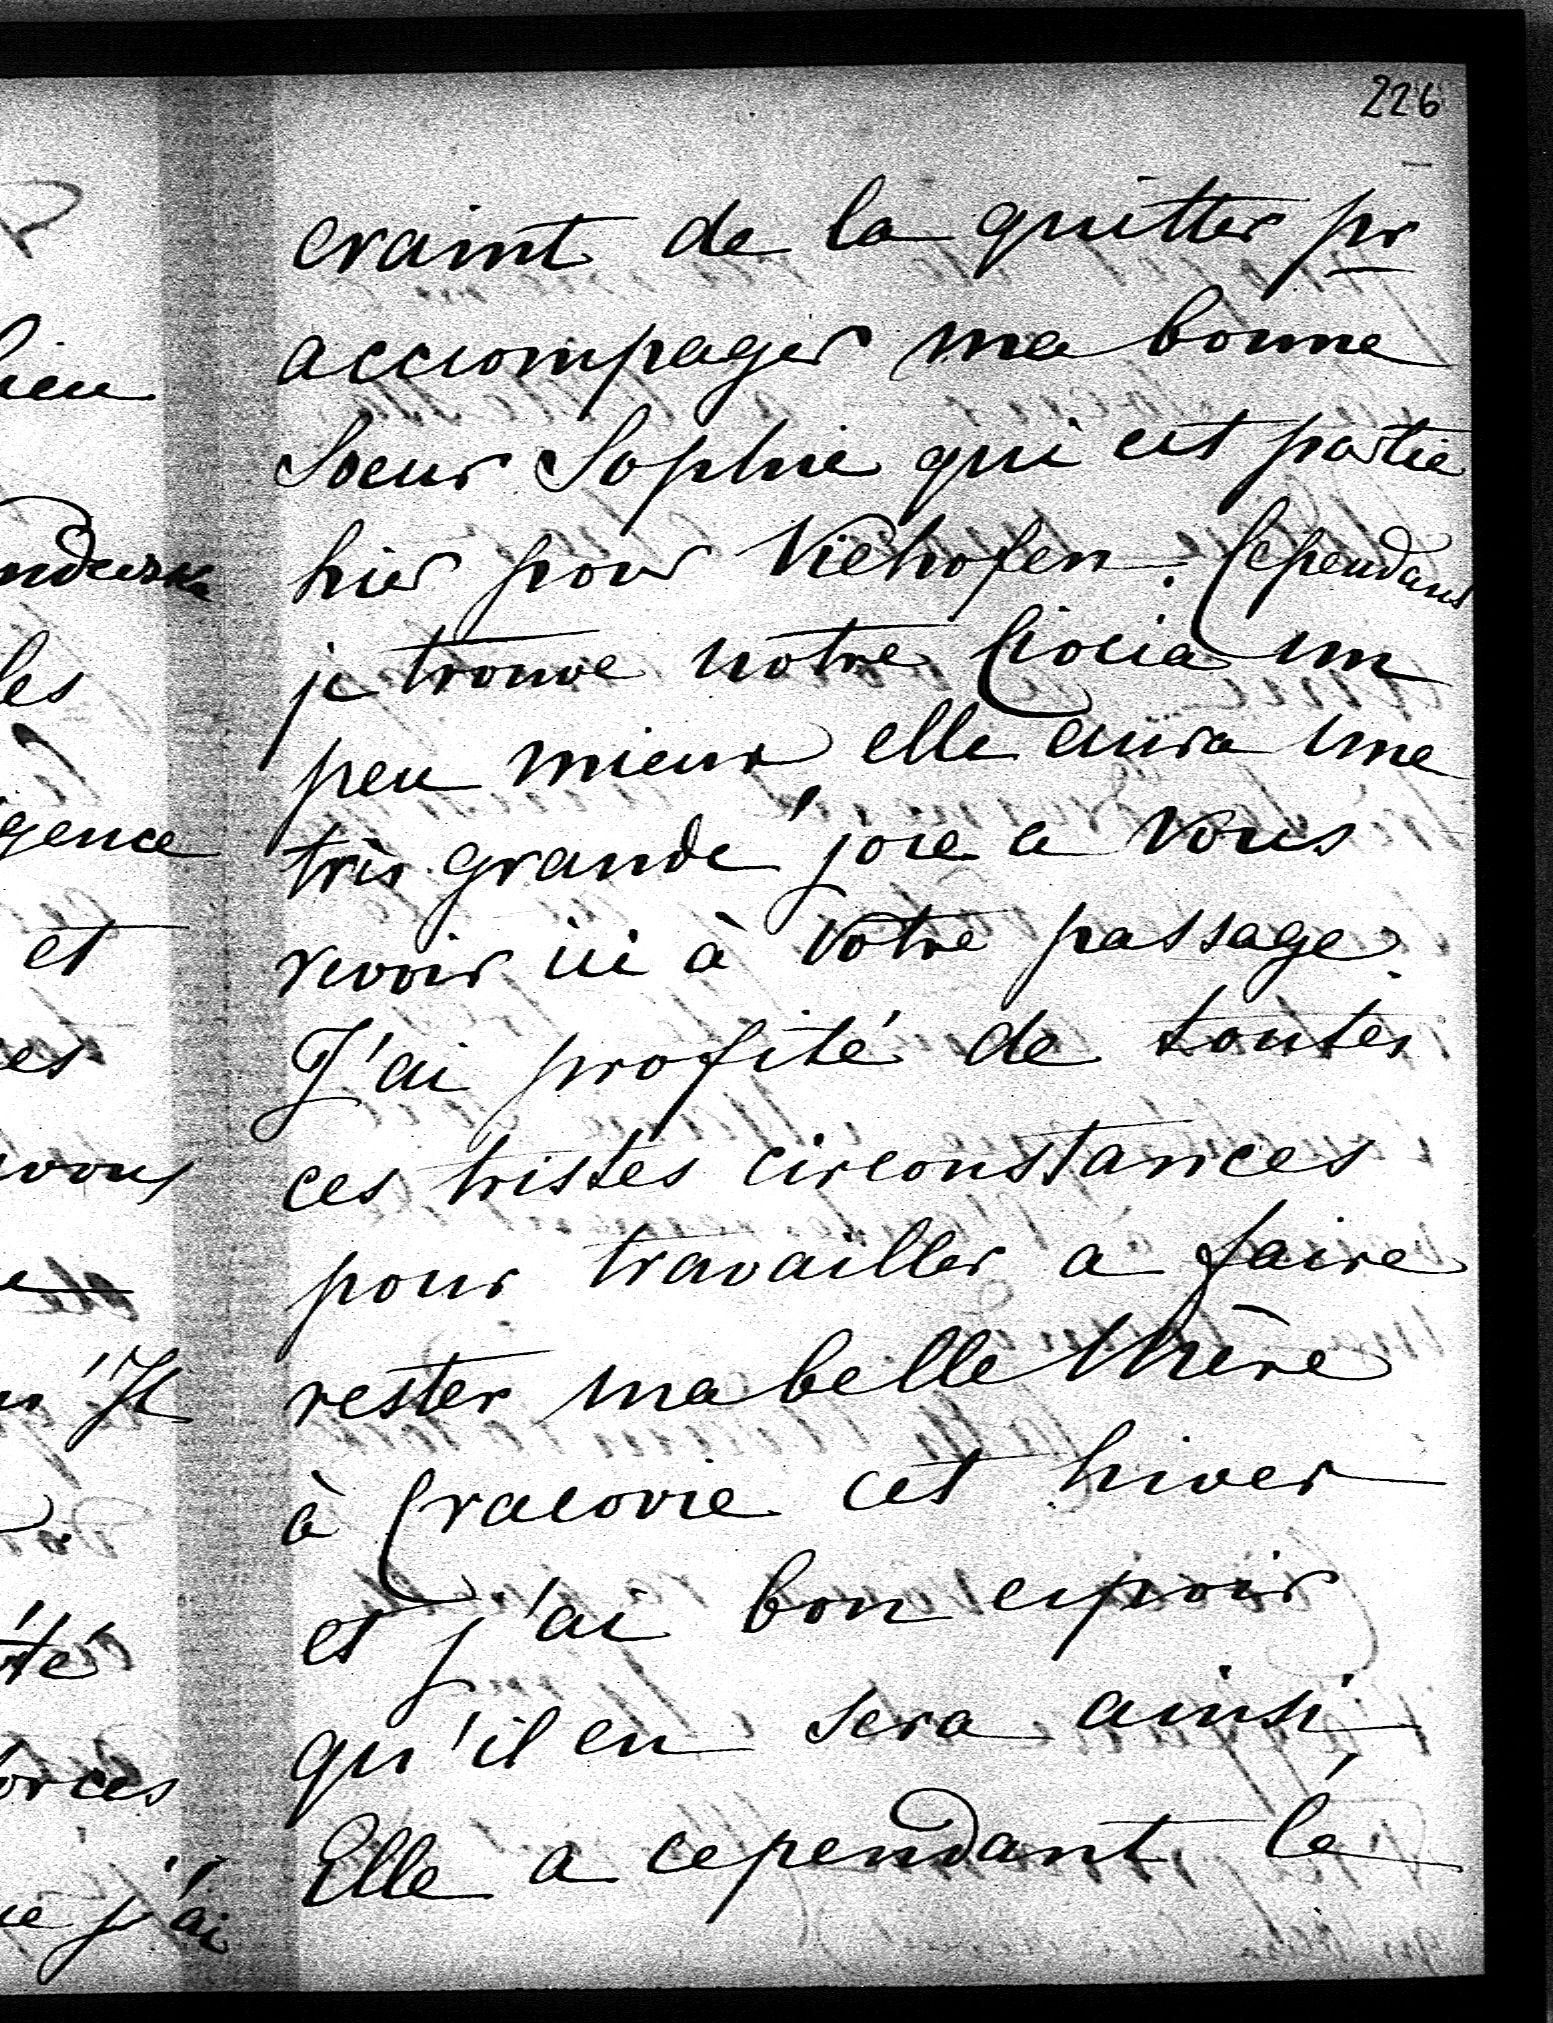 226
craint de la quitter pr
accompager ma bonne
Soeur Sophie qui est partie
hier pour Viehofen. Cependant
je trouve notre Ciocia un
peu mieux elle aura une
très grande joie a vous
revoir ici à votre passage.
J'ai profité de toutes
ces tristes circonstances
pour travailler a faire
rester ma belle Mère
à Cracovie cet hiver
et j'ai bon espoir
qu'il en sera ainsi,
Elle a cependant lé
les
gence
et
vous
n'Il
té
orces
j'ai